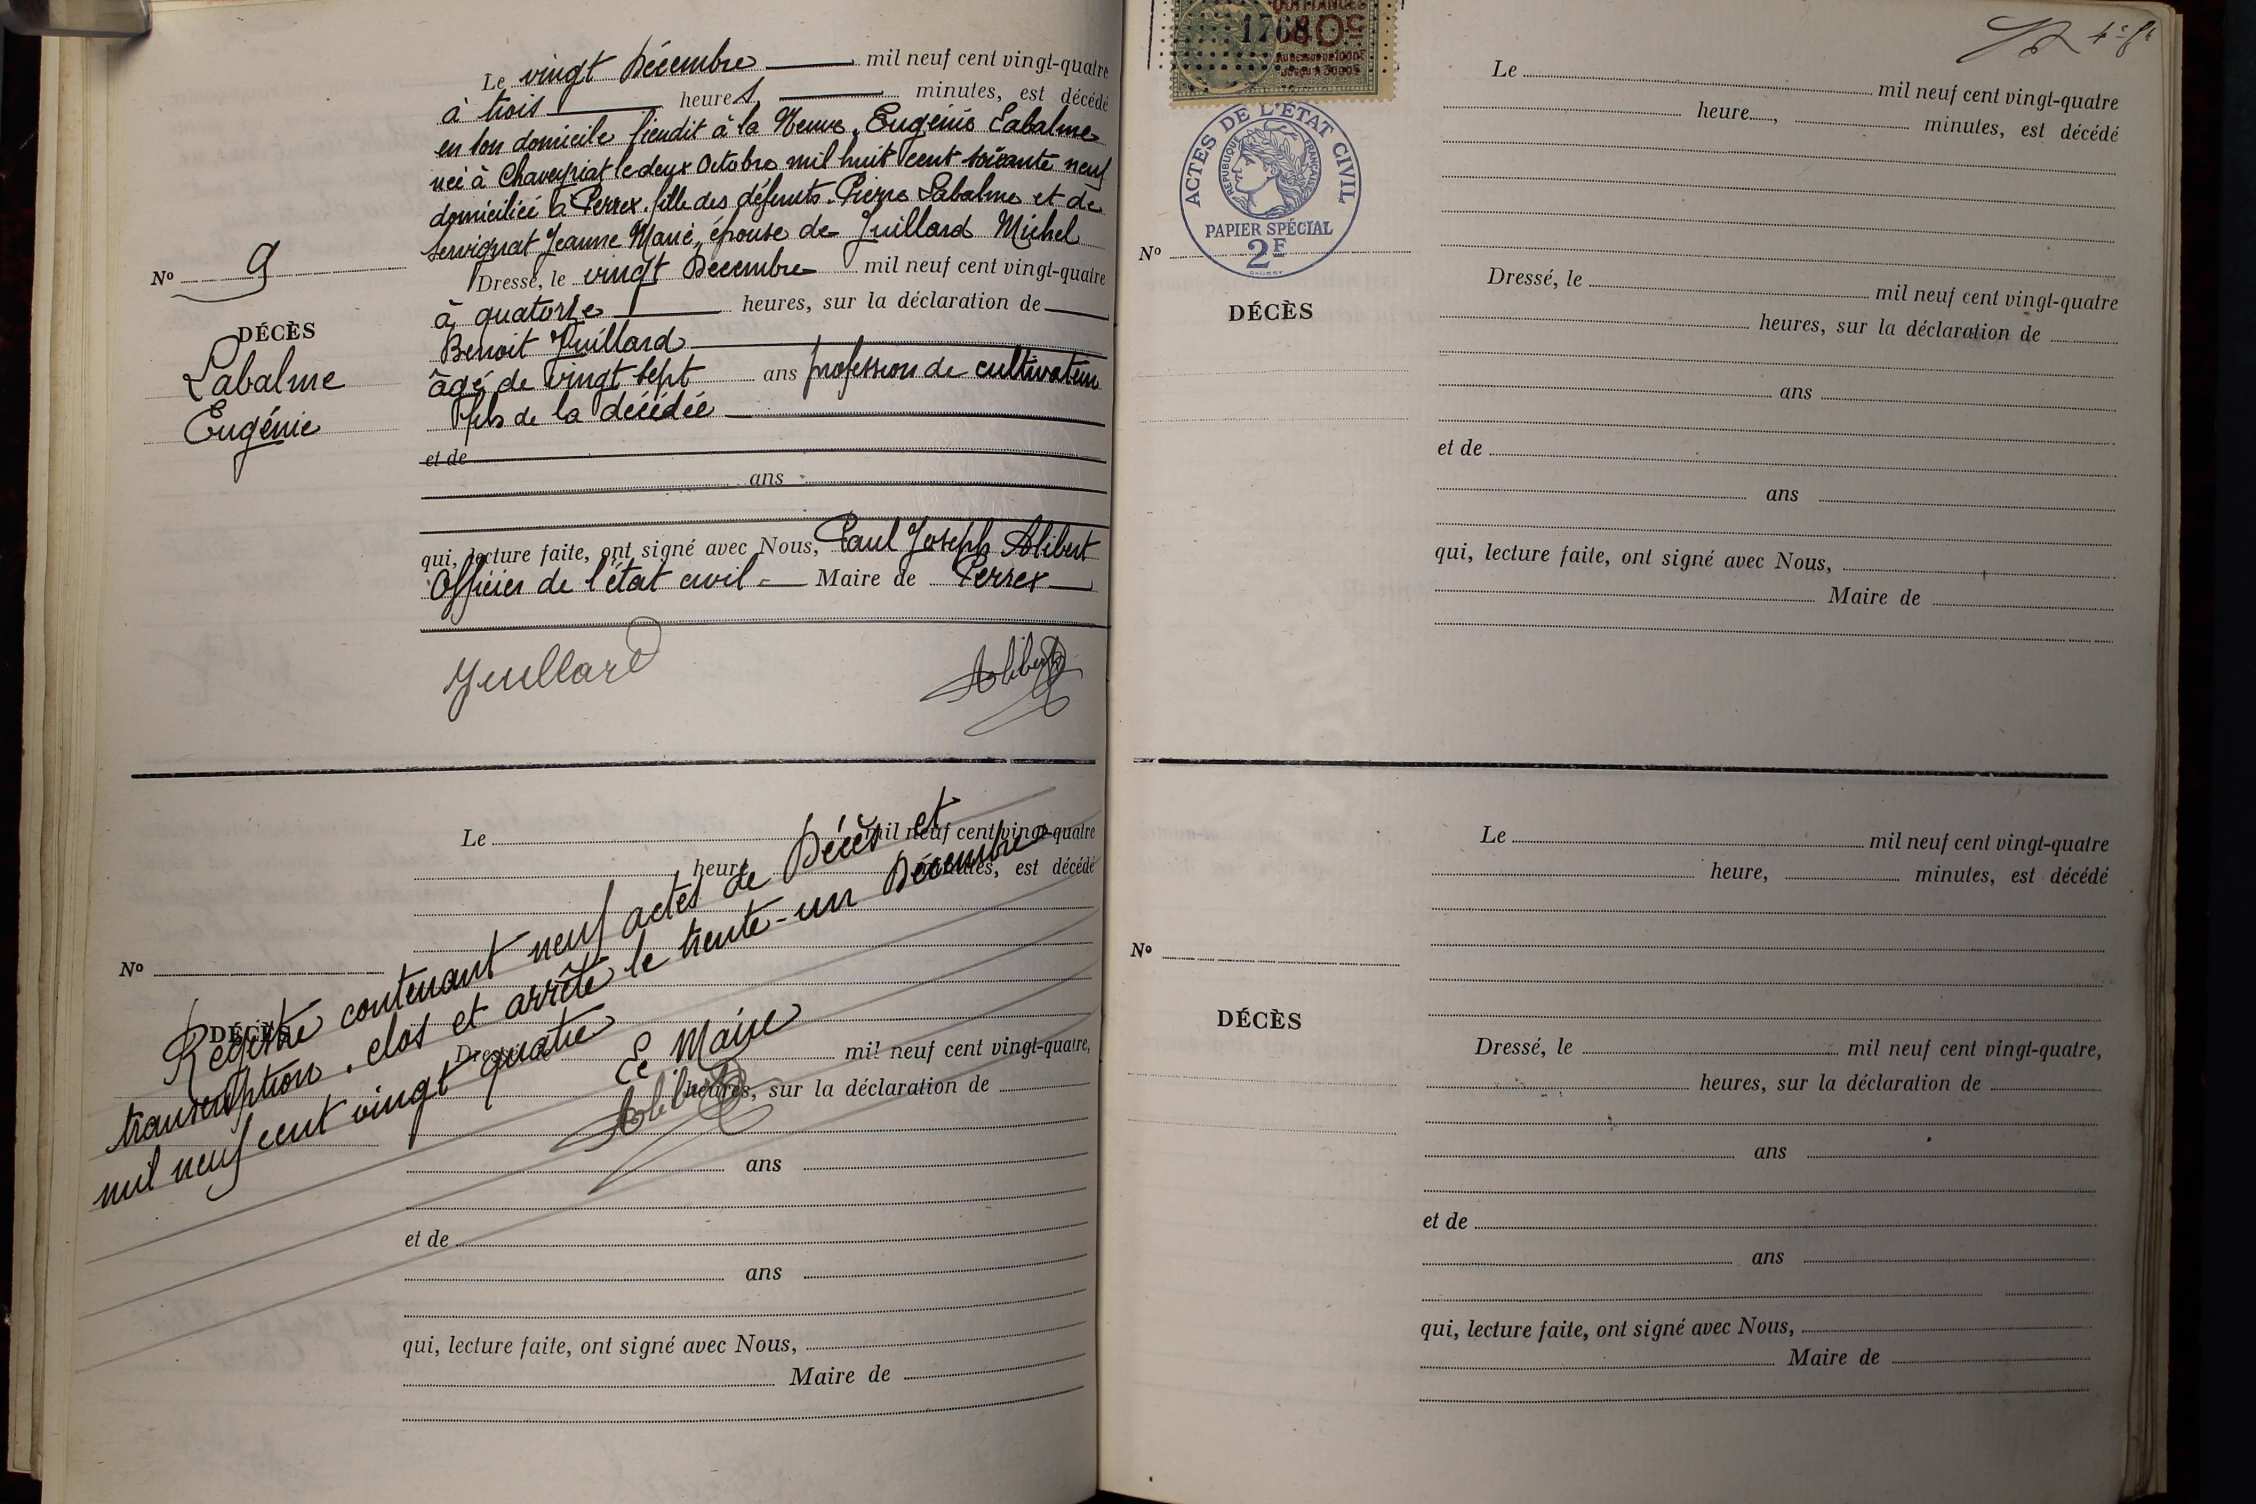 Le vingt Décembre mil neuf cent vingt-quatre
à trois heures, minutes, est décédé
en son domicile lieudit à la Neuve, Eugénie Labalme
née à Chaveyriat le deux Octobre mil huit cent soixante neuf
domiciliée à Perrex, fille des défunts Pierre Labalme et de
Servignat Jeanne Marie, épouse de Juillard Michel
Nº 9
Dressé, le vingt Décembre mil neuf cent vingt-quatre
à quatorze heures, sur la déclaration de
DÉCÈS
Benoit Juillard
Labalme
âgé de vingt sept ans profession de cultivateur
Eugénie
fils de la décédée
et de
ans
qui, lecture faite, ont signé avec Nous, Paul Joseph Alibert
Officier de l'état civil Maire de Perrex
Juillard
Alibert
Le mil neuf cent vingt-quatre
heure minutes, est décédé
Nº
DÉCÈS
Registre contenant neuf actes de Décès et
transcription, clos et arrêté le trente-un Décembre
mil neuf cent vingt quatre
Le Maire
Alibert
Dressé, le mil neuf cent vingt-quatre,
heures, sur la déclaration de
ans
et de
ans
qui, lecture faite, ont signé avec Nous,
Maire de
1768
ACTES DE L'ÉTAT CIVIL
RÉPUBLIQUE FRANÇAISE
PAPIER SPÉCIAL
2F
Le mil neuf cent vingt-quatre
heure, minutes, est décédé
Nº
Dressé, le mil neuf cent vingt-quatre
DÉCÈS
heures, sur la déclaration de
ans
et de
ans
qui, lecture faite, ont signé avec Nous,
Maire de
Le mil neuf cent vingt-quatre
heure, minutes, est décédé
Nº
DÉCÈS
Dressé, le mil neuf cent vingt-quatre,
heures, sur la déclaration de
ans
et de
ans
qui, lecture faite, ont signé avec Nous,
Maire de